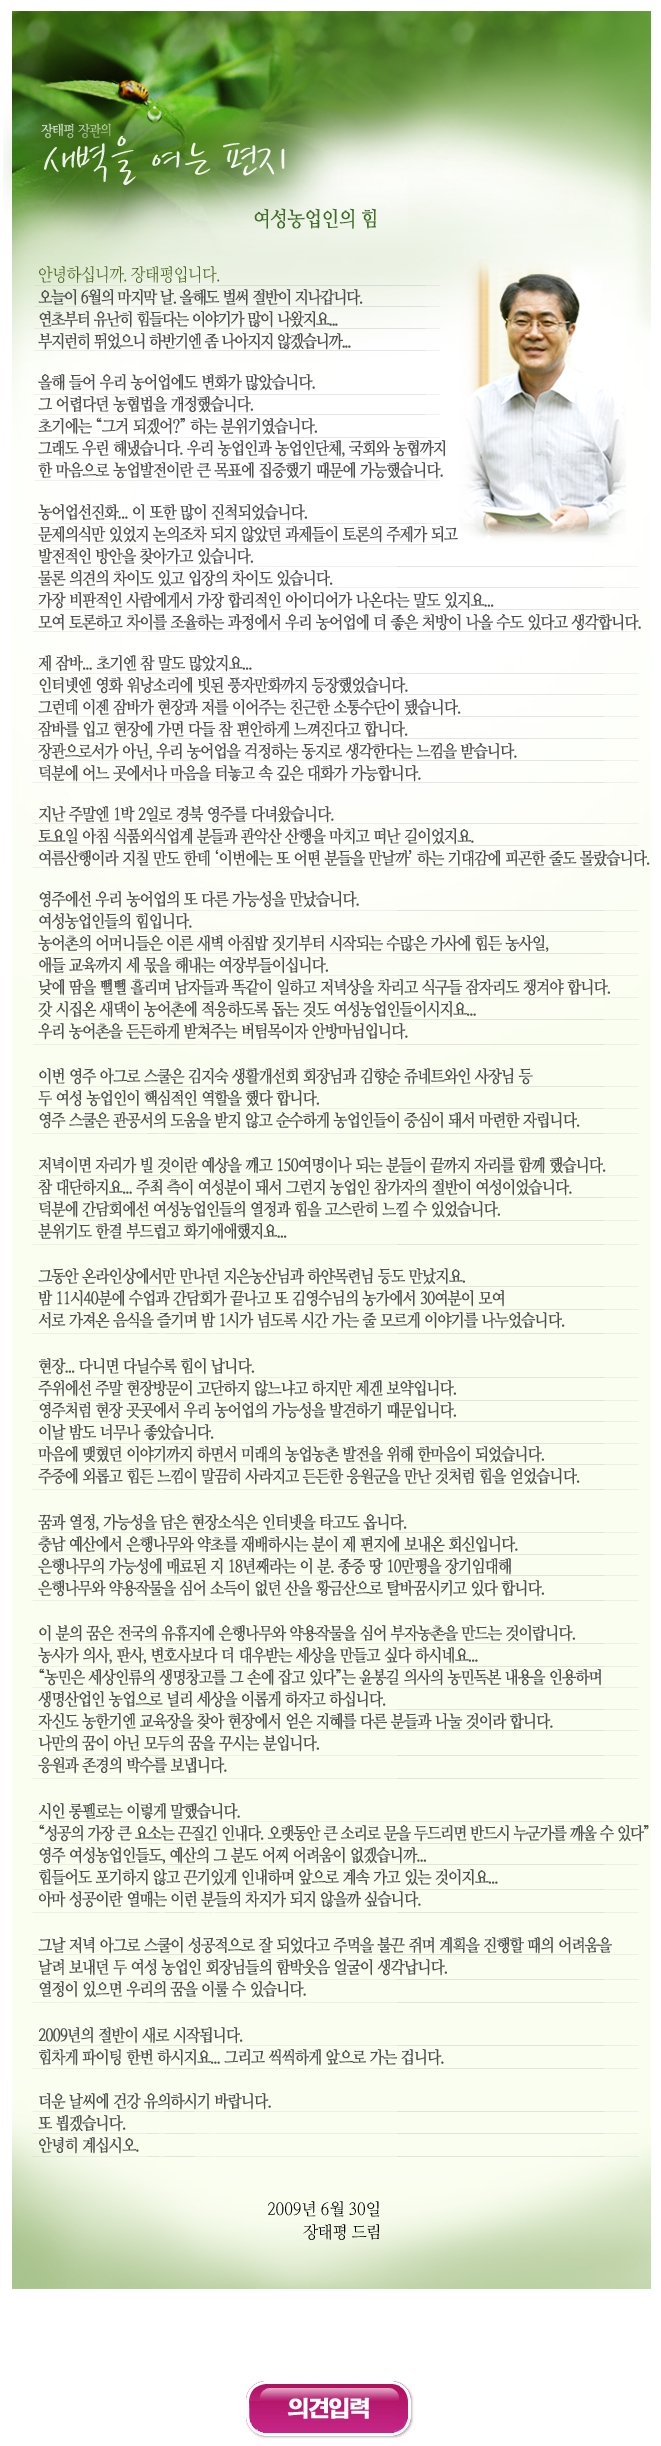 장태평 장관의
새벽을 여는 편지
여성농업인의 힘
안녕하십니까. 장태평입니다.
오늘이 6월의 마지막 날. 올해도 벌써 절반이 지나갑니다.
연초부터 유난히 힘들다는 이야기가 많이 나왔지요...
부지런히 뛰었으니 하반기엔 좀 나아지지 않겠습니까...
올해 들어 우리 농어업에도 변화가 많았습니다.
그 어렵다던 농협법을 개정했습니다.
초기에는 “그거 되겠어?” 하는 분위기였습니다.
그래도 우린 해냈습니다. 우리 농업인과 농업인단체, 국회와 농협까지
한 마음으로 농업발전이란 큰 목표에 집중했기 때문에 가능했습니다.
농어업선진화... 이 또한 많이 진척되었습니다.
문제의식만 있었지 논의조차 되지 않았던 과제들이 토론의 주제가 되고
발전적인 방안을 찾아가고 있습니다.
물론 의견의 차이도 있고 입장의 차이도 있습니다.
가장 비판적인 사람에게서 가장 합리적인 아이디어가 나온다는 말도 있지요...
모여 토론하고 차이를 조율하는 과정에서 우리 농어업에 더 좋은 처방이 나올 수도 있다고 생각합니다.
제 잠바... 초기엔 참 말도 많았지요...
인터넷엔 영화 워낭소리에 빗된 풍자만화까지 등장했었습니다.
그런데 이젠 잠바가 현장과 저를 이어주는 친근한 소통수단이 됐습니다.
잠바를 입고 현장에 가면 다들 참 편안하게 느껴진다고 합니다.
장관으로서가 아닌, 우리 농어업을 걱정하는 동지로 생각한다는 느낌을 받습니다.
덕분에 어느 곳에서나 마음을 터놓고 속 깊은 대화가 가능합니다.
지난 주말엔 1박 2일로 경북 영주를 다녀왔습니다.
토요일 아침 식품외식업계 분들과 관악산 산행을 마치고 떠난 길이었지요.
여름산행이라 지칠 만도 한데 ‘이번에는 또 어떤 분들을 만날까’ 하는 기대감에 피곤한 줄도 몰랐습니다.
영주에선 우리 농어업의 또 다른 가능성을 만났습니다.
여성농업인들의 힘입니다.
농어촌의 어머니들은 이른 새벽 아침밥 짓기부터 시작되는 수많은 가사에 힘든 농사일,
애들 교육까지 세 몫을 해내는 여장부들이십니다.
낮에 땀을 뻘뻘 흘리며 남자들과 똑같이 일하고 저녁상을 차리고 식구들 잠자리도 챙겨야 합니다.
갓 시집온 새댁이 농어촌에 적응하도록 돕는 것도 여성농업인들이시지요...
우리 농어촌을 든든하게 받쳐주는 버팀목이자 안방마님입니다.
이번 영주 아그로 스쿨은 김지숙 생활개선회 회장님과 김향순 쥬네뜨와인 사장님 등
두 여성 농업인이 핵심적인 역할을 했다 합니다.
영주 스쿨은 관공서의 도움을 받지 않고 순수하게 농업인들이 중심이 돼서 마련한 자립니다.
저녁이면 자리가 빌 것이란 예상을 깨고 150여명이나 되는 분들이 끝까지 자리를 함께 했습니다.
참 대단하지요... 주최 측이 여성분이 돼서 그런지 농업인 참가자의 절반이 여성이었습니다.
덕분에 간담회에선 여성농업인들의 열정과 힘을 고스란히 느낄 수 있었습니다.
분위기도 한결 부드럽고 화기애애했지요...
그동안 온라인상에서만 만나던 지은농산님과 하얀목련님 등도 만났지요.
밤 11시40분에 수업과 간담회가 끝나고 또 김영수님의 농가에서 30여분이 모여
서로 가져온 음식을 즐기며 밤 1시가 넘도록 시간 가는 줄 모르게 이야기를 나누었습니다.
현장... 다니면 다닐수록 힘이 납니다.
주위에선 주말 현장방문이 고단하지 않느냐고 하지만 제겐 보약입니다.
영주처럼 현장 곳곳에서 우리 농어업의 가능성을 발견하기 때문입니다.
이날 밤도 너무나 좋았습니다.
마음에 맺혔던 이야기까지 하면서 미래의 농업농촌 발전을 위해 한마음이 되었습니다.
주중에 외롭고 힘든 느낌이 말끔히 사라지고 든든한 응원군을 만난 것처럼 힘을 얻었습니다.
꿈과 열정, 가능성을 담은 현장소식은 인터넷을 타고도 옵니다.
충남 예산에서 은행나무와 약초를 재배하시는 분이 제 편지에 보내온 회신입니다.
은행나무의 가능성에 매료된 지 18년째라는 이 분. 종중 땅 10만평을 장기임대해
은행나무와 약용작물을 심어 소득이 없던 산을 황금산으로 탈바꿈시키고 있다 합니다.
이 분의 꿈은 전국의 유휴지에 은행나무와 약용작물을 심어 부자농촌을 만드는 것이랍니다.
농사가 의사, 판사, 변호사보다 더 대우받는 세상을 만들고 싶다 하시네요...
“농민은 세상인류의 생명창고를 그 손에 잡고 있다”는 윤봉길 의사의 농민독본 내용을 인용하며
생명산업인 농업으로 널리 세상을 이롭게 하자고 하십니다.
자신도 농한기엔 교육장을 찾아 현장에서 얻은 지혜를 다른 분들과 나눌 것이라 합니다.
나만의 꿈이 아닌 모두의 꿈을 꾸시는 분입니다.
응원과 존경의 박수를 보냅니다.
시인 롱펠로는 이렇게 말했습니다.
“성공의 가장 큰 요소는 끈질긴 인내다. 오랫동안 큰 소리로 문을 두드리면 반드시 누군가를 깨울 수 있다”
영주 여성농업인들도, 예산의 그 분도 어찌 어려움이 없겠습니까...
힘들어도 포기하지 않고 끈기있게 인내하며 앞으로 계속 가고 있는 것이지요...
아마 성공이란 열매는 이런 분들의 차지가 되지 않을까 싶습니다.
그날 저녁 아그로 스쿨이 성공적으로 잘 되었다고 주먹을 불끈 쥐며 계획을 진행할 때의 어려움을
날려 보내던 두 여성 농업인 회장님들의 함박웃음 얼굴이 생각납니다.
열정이 있으면 우리의 꿈을 이룰 수 있습니다.
2009년의 절반이 새로 시작됩니다.
힘차게 파이팅 한번 하시지요... 그리고 씩씩하게 앞으로 가는 겁니다.
더운 날씨에 건강 유의하시기 바랍니다.
또 뵙겠습니다.
안녕히 계십시오.
2009년 6월 30일
장태평 드림
의견입력